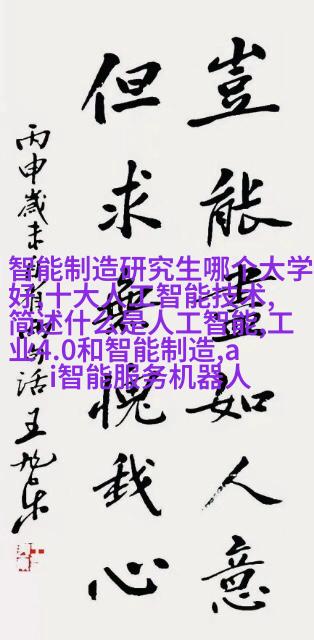 豈能盡如人意
但求無愧我心
丙申歲末
王旭东
智能制造研究生哪个大学
好,十大人工智能技术,
简述什么是人工智能,工
业4.0和智能制造,a
i智能服务机器人